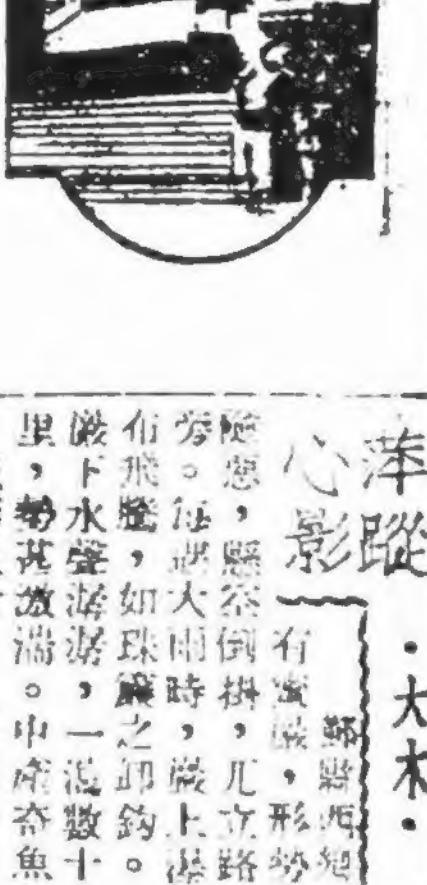 萍蹤
心影
·大木·
鄞縣西
有巖，形勢
懸空倒掛，兀立路
旁。每遇大雨時，巖上瀑
布飛騰，如珠簾之卸鈎。
巖下水聲潺潺，一瀉數十
里，勢甚激湍。中產奇魚